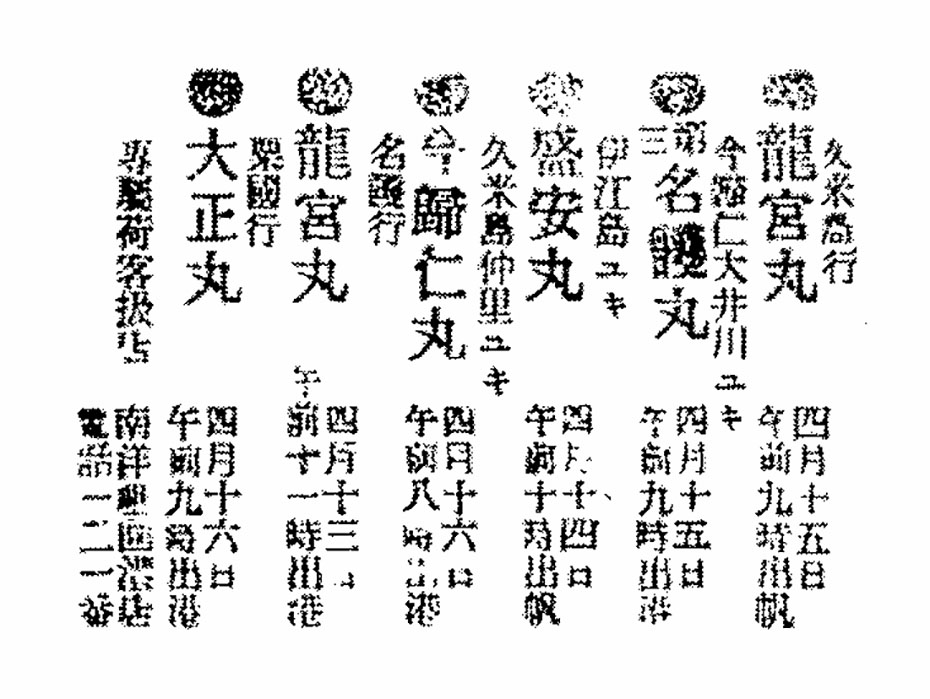 久米島行
龍宮丸
四月十五日
午前九時出帆
今歸仁大井川ユキ
第三名護丸
四月十五日
午前九時出港
伊江島ユキ
盛安丸
四月十四日
午前十時出帆
久米島仲里ユキ
今歸仁丸
四月十六日
午前八時出港
名護行
龍宮丸
四月十三日
午前十一時出港
粟國行
大正丸
四月十六日
午前九時出港
專屬荷客扱店
南洋
電話一二一番